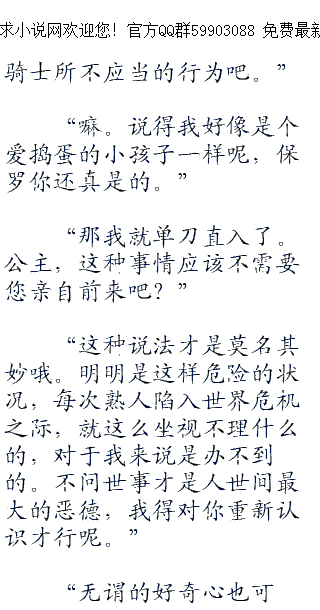 求小说网欢迎您！官方QQ群59903088 免费最新
骑士所不应当的行为吧。”
“嘛。说得我好像是个
爱捣蛋的小孩子一样呢，保
罗你还真是的。”
“那我就单刀直入了。
公主，这种事情应该不需要
您亲自前来吧？”
“这种说法才是莫名其
妙哦。明明是这样危险的状
况，每次熟人陷入世界危机
之际，就这么坐视不理什么
的，对于我来说是办不到
的。不问世事才是人世间最
大的恶德，我得对你重新认
识才行呢。”
“无谓的好奇心也可